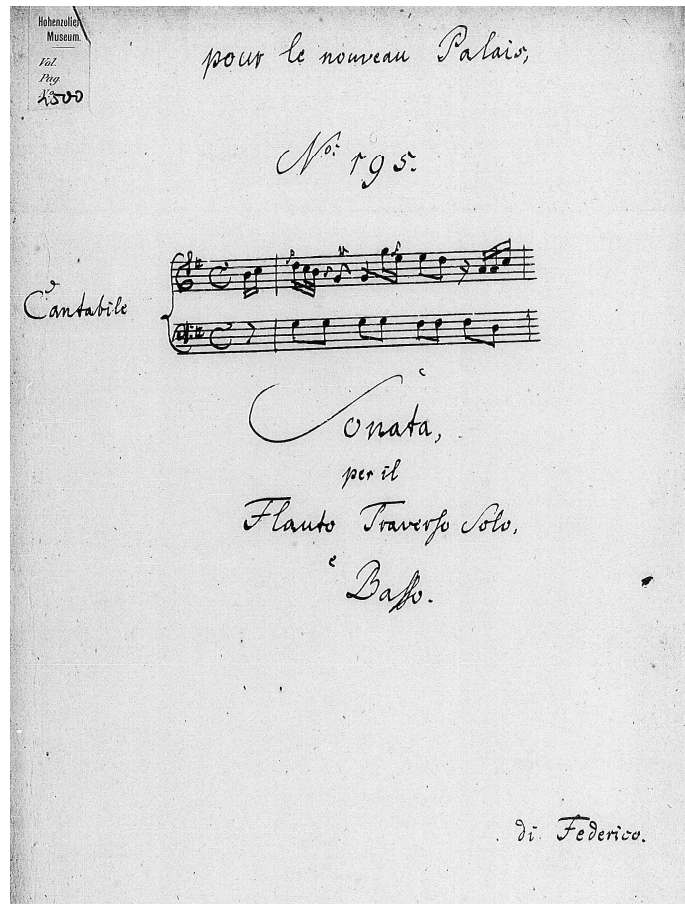 Hohenzoller
Museum.
Vol.
Pag.
2500
pour le nouveau Palais,
No: 195.
Cantabile
Sonata,
per il
Flauto Traverso Solo,
è
Basso.
di Federico.